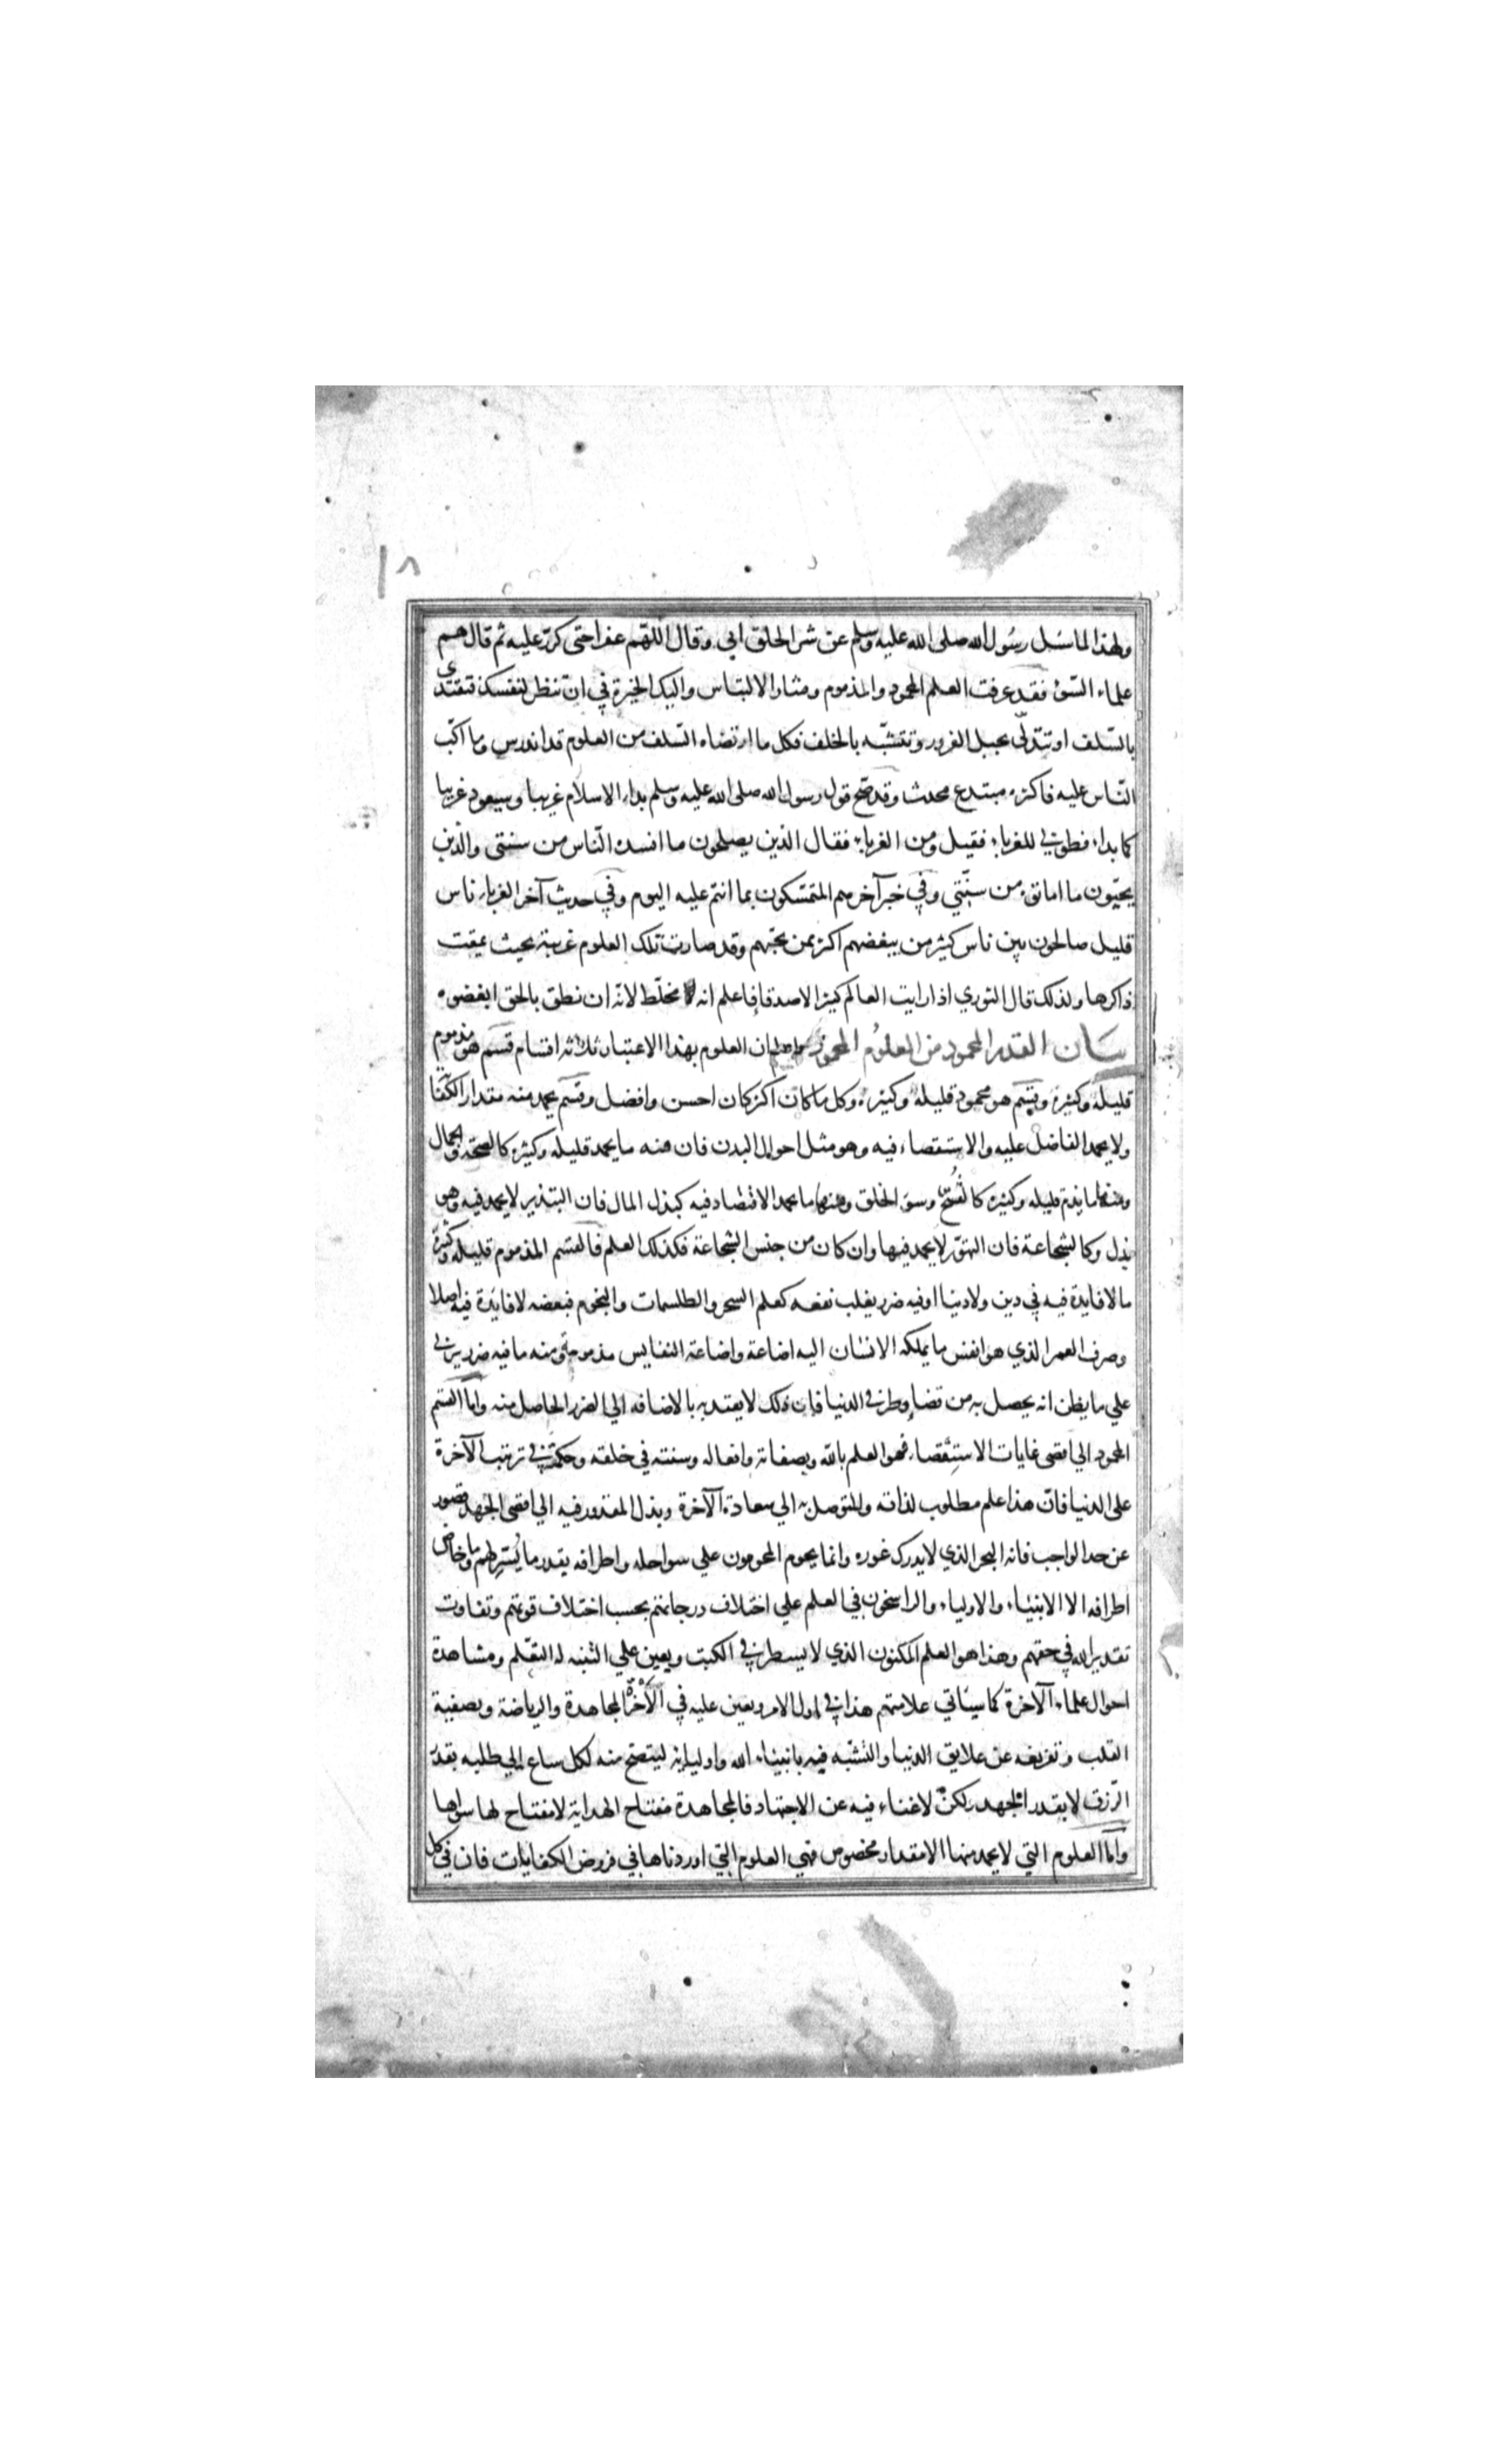 ١٨
ولهذا لما سئل رسول الله صلى الله عليه وسلم عن شر الخلق ابي وقال اللهم غفرا حتى كرر عليه ثم قال هم
علماء السؤ فقد عرفت العلم المحمود والمذموم ومثار الالتباس واليك الخيرة في ان تنظر لنفسك فتقتدي
بالسّلف او تتدلّى بحبل الغرور وتتشبّه بالخلف فكل ما ارتضاه السّلف من العلوم قد اندرس وما اكبّ
النّاس عليه فاكثره مبتدع محدث وقد صحّ قول رسول الله صلى الله عليه وسلم بداء الاسلام غريبا وسيعود غريبا
كما بداء فطوبي للغرباء فقيل ومن الغرباء فقال الذين يصلحون ما افسده النّاس من سنتي والذين
يحيّون ما اماتوه من سنّتي وفي خبر آخر هم المتمسّكون بما انتم عليه اليوم وفي حديث آخر الغرباء ناس
قليل صالحون بين ناس كثير من يبغضهم اكثر ممن يحبّهم وقد صارت تلك العلوم غريبة بحيث يمقت
ذاكرها ولذلك قال الثوري اذا رايت العالم كثير الاصدقاء فاعلم انه مخلّط لانّه ان نطق بالحق ابغضوه
بيان القدر المحمود من العلوم المحمودة واعلم ان العلوم بهذا الاعتبار ثلاثه اقسام قسم هو مذموم
قليله وكثيره وقسم هو محمود قليله وكثيره وكل ما كان اكثر كان احسن وافضل وقسم يحمد منه مقدار الكفا
ولا يحمد الفاضل عليه والاستقصاء فيه وهو مثل احوال البدن فان منه ما يحمد قليله وكثيره كالصحّة والجمال
ومنها ما يذم قليله وكثيره كالقبح وسوء الخلق ومنها ما يحمد الاقتصاد فيه كبذل المال فان التبذير لا يحمد فيه وهو
بذل وكالشجاعة فان التهوّر لا يحمد فيها وان كان من جنس الشجاعة فكذلك العلم فالقسم المذموم قليله وكثيره
ما لا فايدة فيه في دين ولا دنيا او فيه ضرر يغلب نفعه كعلم السحر والطلسمات والنجوم فبعضه لا فايدة فيه اصلا
وصرف العمر الذي هو انفس ما يملكه الانسان اليه اضاعة واضاعة النفايس مذمومة ومنه ما فيه ضرر يربي
علي ما يظن انه يحصل به من قضاء وطر في الدنيا فان ذلك لا يعتد به بالاضافه الي الضرر الحاصل منه واما القسم
المحمود الي اقصى غايات الاستقصاء فهو العلم بالله وبصفاته وافعاله وسنته في خلقه وحكمته في ترتيب الآخرة
على الدنيا فانّ هذا علم مطلوب لذاته وللتوصل به الي سعادة الآخرة وبذل المقدور فيه الي اقصى الجهد قصور
عن حد الواجب فانه البحر الذي لا يدرك غوره وانما يحوم المحومون علي سواحله واطرافه بقدر ما يُسّر لهم وما خاض
اطرافه الا الانبياء والاولياء والراسخون في العلم علي اختلاف درجاتهم بحسب اختلاف قوتهم وتفاوت
تقدير الله في حقهم وهذا هو العلم المكنون الذي لا يسطر في الكتب ويعين علي التنبه له التعلم ومشاهدة
احوال علماء الآخرة كما سيأتي علامتهم هذا في اول الامر ويعين عليه في الآخرة المجاهدة والرياضة وتصفية
القلب وتفريغه عن علايق الدنيا والتشبّه فيه بانبياء الله واوليايه ليتضح منه لكل ساع الي طلبه بقدر
الرّزق لا بقدر الجهد ولكن لا غناء فيه عن الاجتهاد فالمجاهدة مفتاح الهداية لا مفتاح لها سواها
وامّا العلوم التي لا يحمد منها الا مقدار مخصوص فهي العلوم التي اوردناها في فروض الكفايات فان في كل